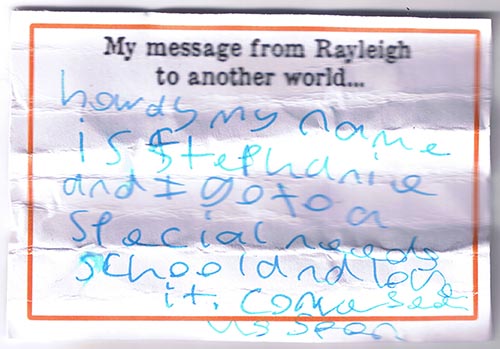 My message from Rayleigh
to another world...
howdy my name
is Stephanie
and I go to a
special needs
school and love
it. come and see
us soon